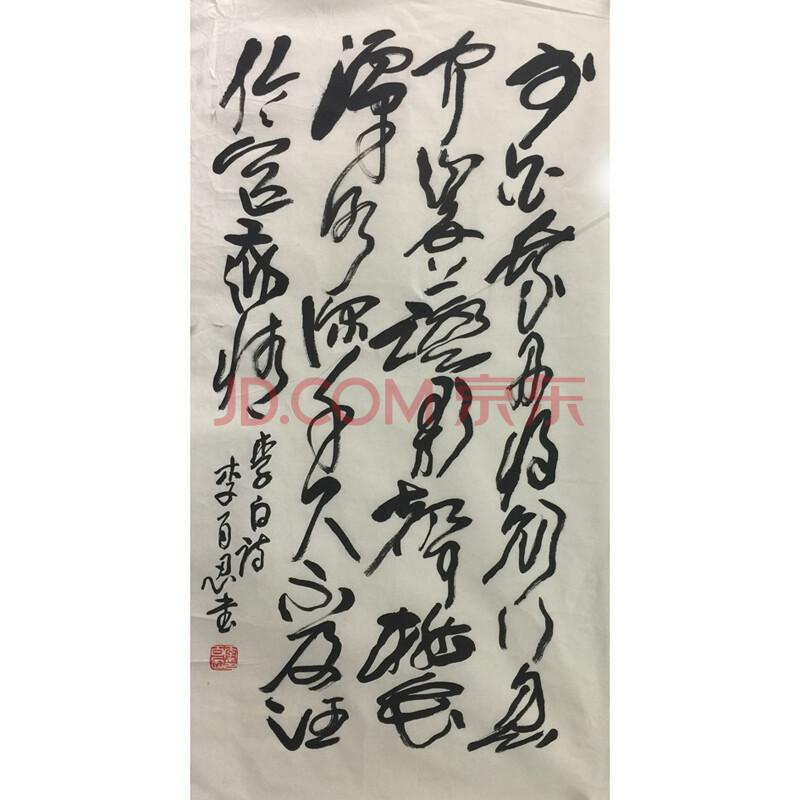 李白乘舟将欲行忽
闻岸上踏歌声桃花
潭水深千尺不及汪
伦送我情
李白诗
李百忍书
JD.COM 京东